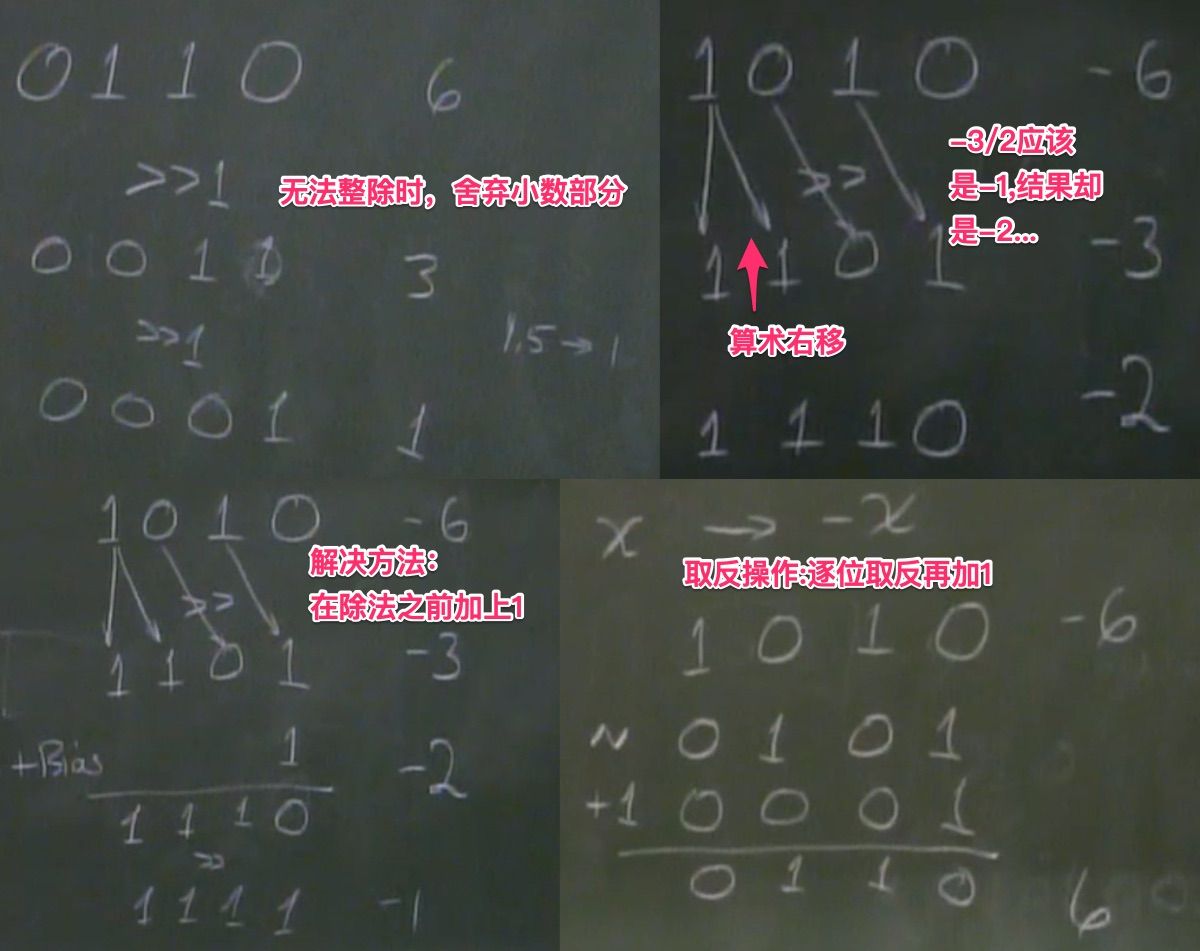 0 1 1 0 6
>>1
无法整除时，舍弃小数部分
0 0 1 1 3
>>1
1.5→1
0 0 0 1 1
1 0 1 0 -6
-3/2应该
是-1,结果却
是-2...
>>
1 1 0 1 -3
算术右移
1 1 1 0 -2
1 0 1 0 -6
解决方法：
在除法之前加上1
>>
1 1 0 1 -3
+Bias 1 -2
1 1 1 0
>>
1 1 1 1 -1
x → -x
取反操作:逐位取反再加1
1 0 1 0 -6
~ 0 1 0 1
+1 0 0 0 1
0 1 1 0 6